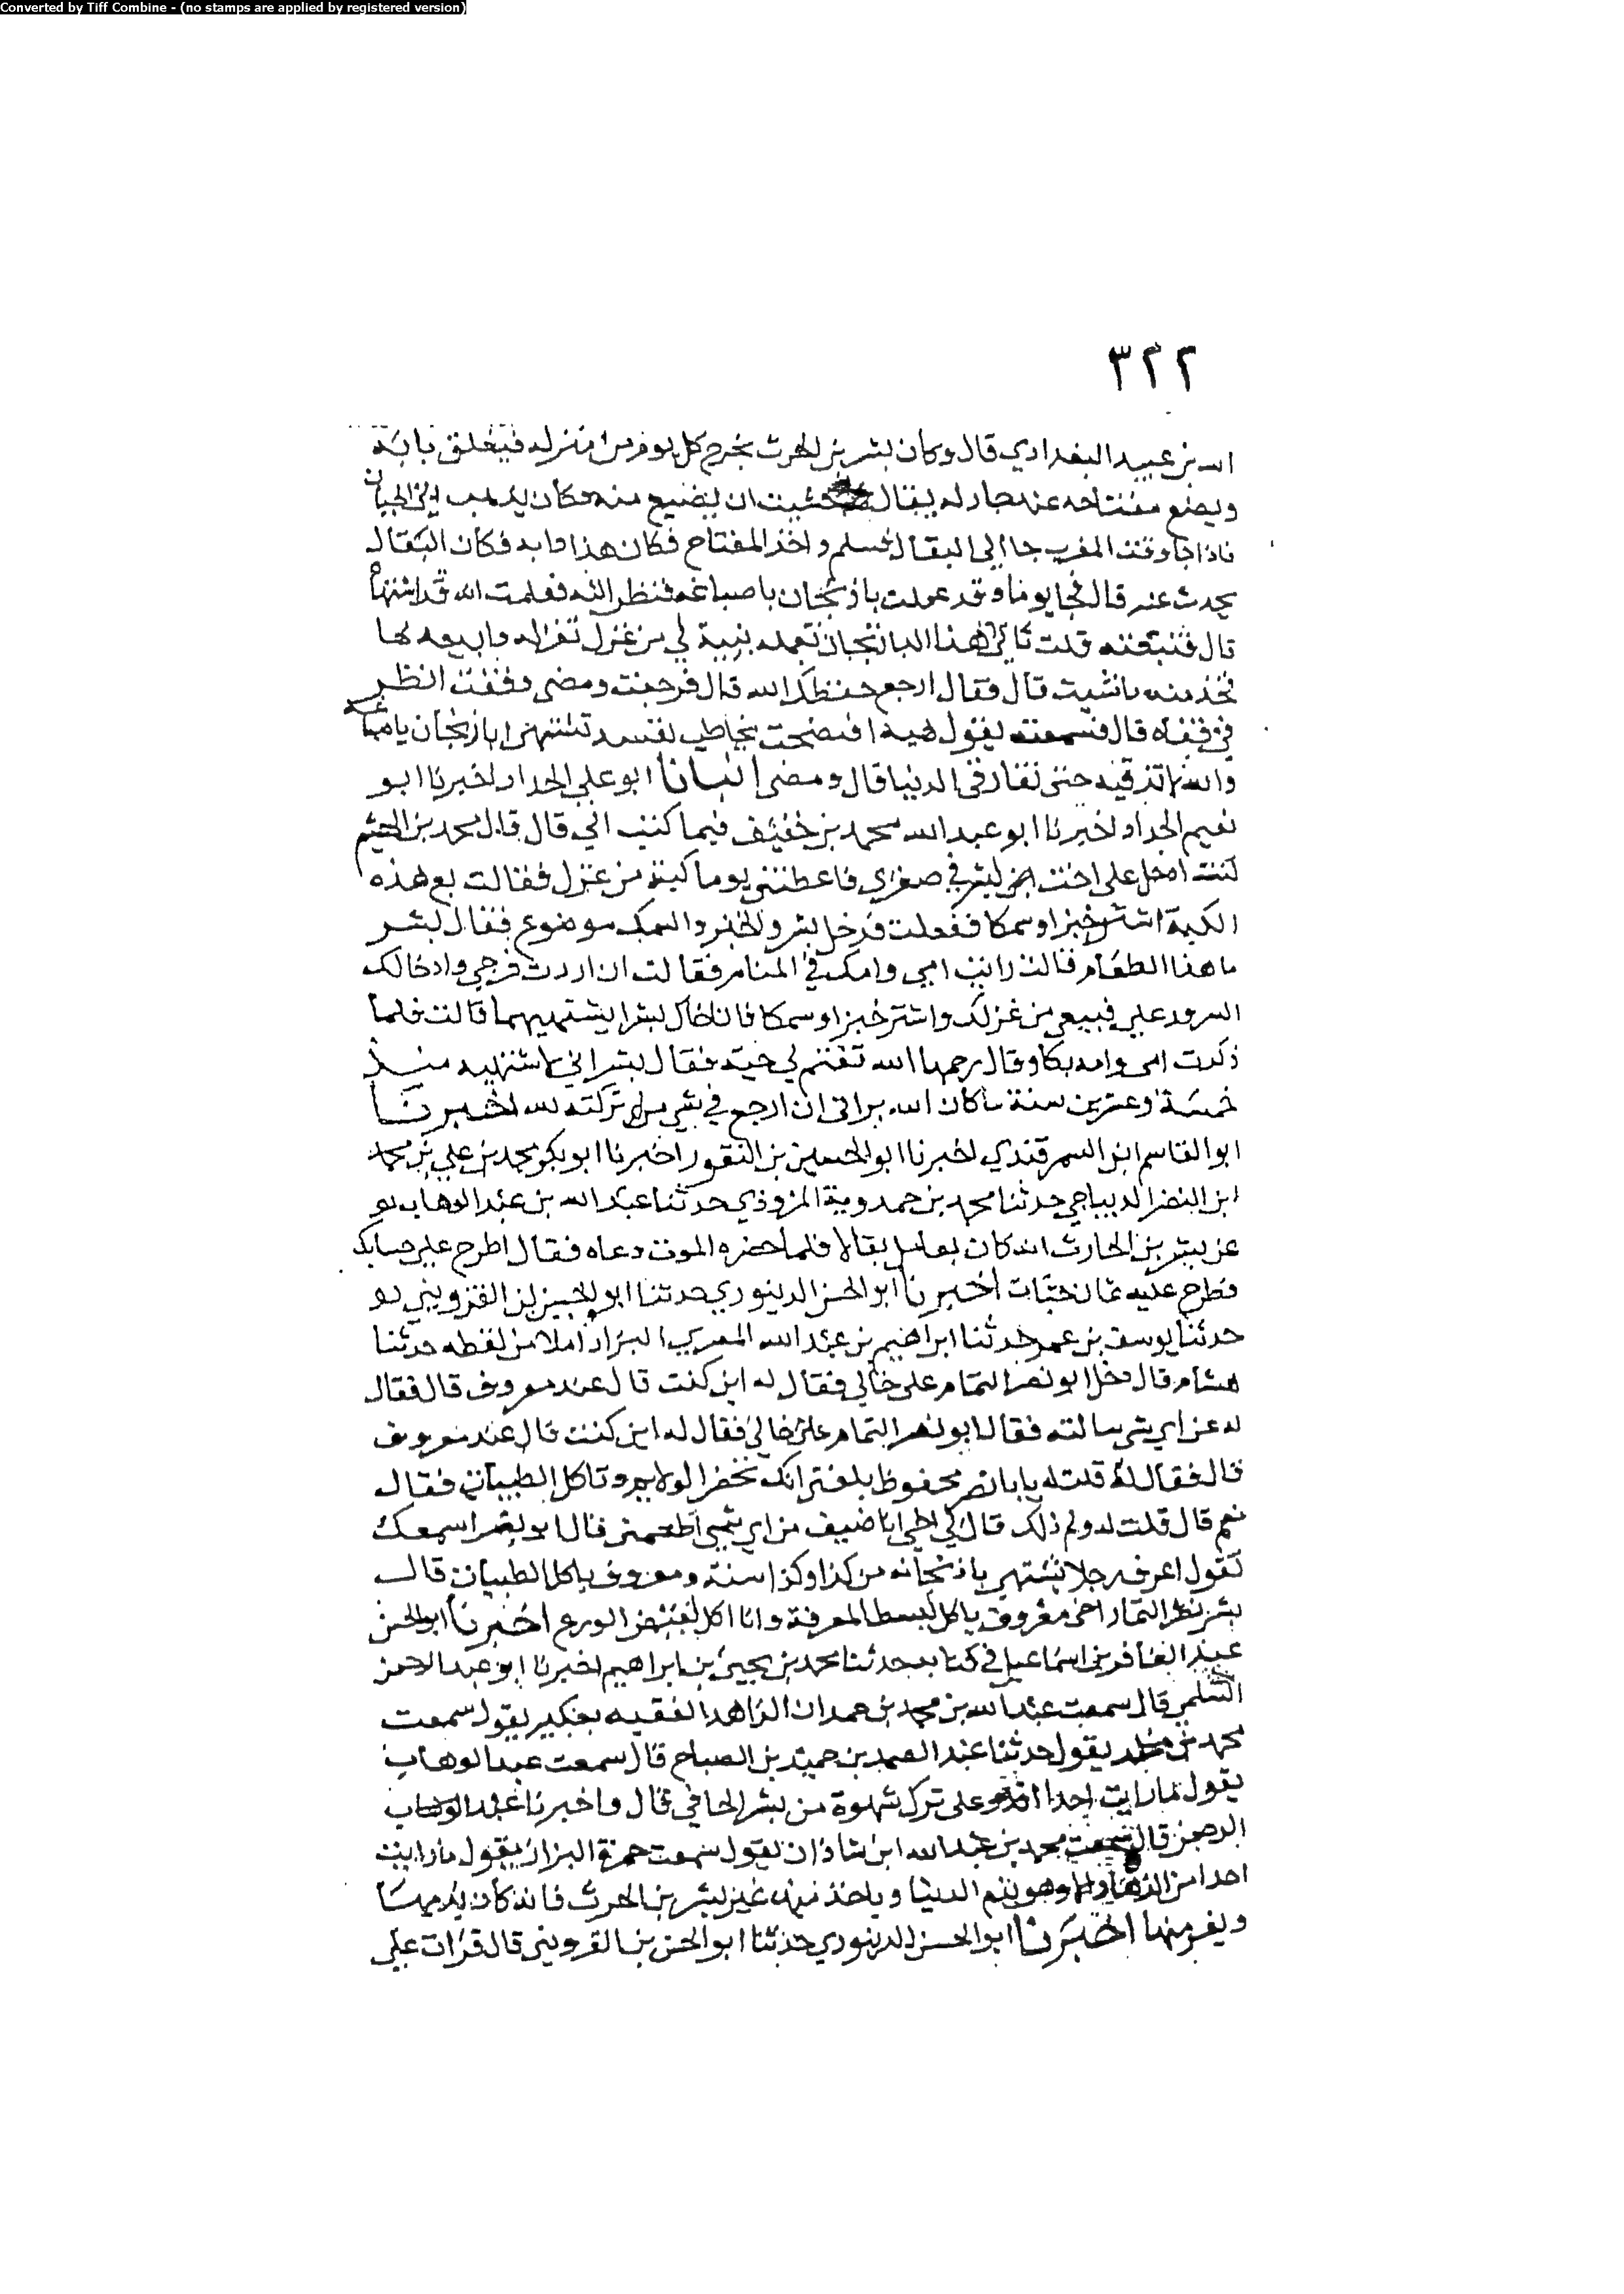 Converted by Tiff Combine - (no stamps are applied by registered version)
٣٢٢
الله بن عبيد البغدادي قال وكان بشر بن الحرث يخرج كل يوم من منزله فيغلق بابه
ويضع مفتاحه عند جار له بقال خشيت ان يضيع منه وكان يذهب الى الجبان
فاذا جا وقت المغرب جا الى البقال فسلم واخذ المفتاح فكان هذا دابه فكان البقال
يحدث عنه قال فجا يوما وقد عملت باذنجان باصباغه فنظر اليه فعلمت انه قد اشتهاه
قال فتبعته قلت هذا الباذنجان تعمله بنية لي من غزل تغزله وابيعه لها
فخذ منه ما شيت قال فقال ارجع حفظك الله قال فرجعت ومضى وقفت انظر
في قفاه قال فسمعته يقول هيه افتضحت يخاطب نفسه تشتهي باذنجان باصباغه
والله لا تذوقيه حتى تفارقي الدنيا قال ومضى انبانا ابو علي الحداد اخبرنا ابو
نعيم الحداد اخبرنا ابو عبد الله محمد بن خفيف فيما كتب الي قال قال محمد بن الهيثم
كنت ادخل على اخت بشر في صغري فاعطتني يوما كبة من غزل فقالت بع هذه
الكبة اشتر خبزا وسمكا ففعلت فدخل بشر والخبز والسمك موضوع فقال بشر
ما هذا الطعام قالت رايت امي وامك في المنام فقالت ان اردت فرحي وادخالك
السرور علي فبيعي من غزلك واشتر خبزا وسمكا فان اخاك بشرا يشتهيهما قالت فلما
ذكرت امي وامه بكا وقال رحمها الله تغتم لي حية فقال بشر اني لاشتهيه منذ
خمسة وعشرين سنة ما كان الله يراني ان ارجع في شي تركته لله اخبرنا
ابو القاسم ابن السمرقندي اخبرنا ابو الحسين بن النقور اخبرنا ابو بكر محمد بن علي بن محمد
ابن النضر الديباجي حدثنا محمد بن حمدوية المروذي حدثنا عبد الله بن عبد الوهاب
عن بشر بن الحارث انه كان يعامل بقالا فلما حضره الموت دعاه فقال اطرح علي حسابك
فطرح عليه ثمان حبات اخبرنا ابو الحسن الدينوري حدثنا ابو الحسن بن القزويني
حدثنا يوسف بن عمر حدثنا ابراهيم بن عبد الله المصري البزاز املا من لفظه حدثنا
هشام قال دخل ابو نصر التمام على خالي فقال له اين كنت قال عند معروف قال فقال
له عن اي شي سالته فقال ابو نصر التمام على خالي فقال له اين كنت قال عند معروف
قال فقال له قلت له يا با محفوظ بلغني انك تحضر الولايم وتاكل الطيبات فقال
نعم قال قلت له ولم ذلك قال لي اخي انا ضيف من اي شي اطعمني قال ابو نصر اسمعك
تقول اعرف رجلا يشتهي باذنجانه من كذا وكذا سنة ومعروف ياكل الطيبات قال
بشر نظر التمار اخي معروف ياكل ببسط المعرفة وانا اكل بقبض الورع اخبرنا ابو الحسن
عبد الغافر بن اسماعيل في كتابه حدثنا محمد بن يحيى بن ابراهيم اخبرنا ابو عبد الرحمن
السلمي قال سمعت عبد الله بن محمد بن حمدان الزاهد الفقيه بعكبر يقول سمعت
محمد بن مخلد يقول حدثنا عبد الصمد بن حميد بن الصباح قال سمعت عبد الوهاب
يقول ما رايت احدا اقدر على ترك شهوة من بشر الحافي قال واخبرنا عبد الوهاب
الرحمن قال سمعت محمد بن عبد الله ابن شاذان يقول سمعت حمزة البزاز يقول ما رايت
احدا من الزهاد الا وهو يذم الدنيا وياخذ منها غير بشر بن الحرث فانه كان يذمها
ويفر منها اخبرنا ابو الحسن الدينوري حدثنا ابو الحسن بن القزويني قال قرات علي